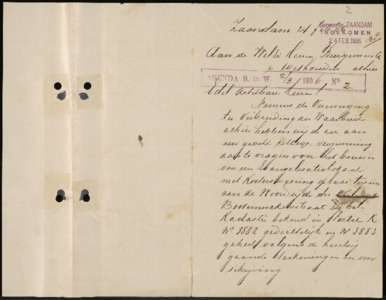 2
Zaandam 24
Gemeente ZAANDAM
INGEKOMEN
24 FEB. 1906
Aan de Heeren Burgemeester
& Wethouders alhier
AGENDA B. en W. 2/3 1906 No 2
Edel Achtbare Heeren
Namens de Vereeniging
tot Verbreiding der Waarheid
alhier hebben wij de eer aan
u beleefd vergunning
aan te vragen voor het bouwen
van een Evangelisatielokaal
met Kosterswoning op het terrein
aan de Noordzijde der
Botenmakersstraat bij het
Kadaster bekend in Sectie K
No 3882 gedeeltelijk en No 3883
geheel volgens de hierbij
gaande teekeningen en om-
schrijving